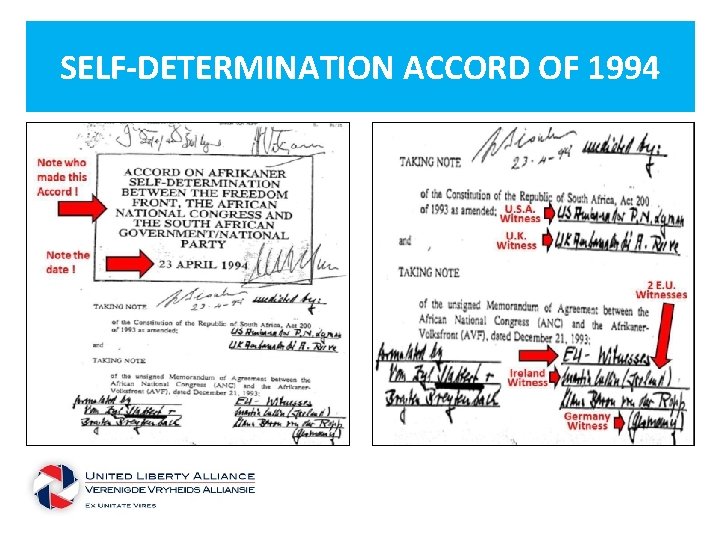 SELF-DETERMINATION ACCORD OF 1994
Note who
made this
Accord !
ACCORD ON AFRIKANER
SELF-DETERMINATION
BETWEEN THE FREEDOM
FRONT, THE AFRICAN
NATIONAL CONGRESS AND
THE SOUTH AFRICAN
GOVERNMENT/NATIONAL
PARTY
Note the
date !
23 APRIL 1994
TAKING NOTE
23-4-94
mediated by:
of the Constitution of the Republic of South Africa, Act 200
of 1993 as amended;
US Ambassador P.N. Lyman
and
UK Ambassador A. Reeve
TAKING NOTE
of the unsigned Memorandum of Agreement between the
African National Congress (ANC) and the Afrikaner-
Volksfront (AVF), dated December 21, 1993;
formulated by
EU - Witnesses
Van Zyl Slabbert +
(Ireland)
Breyten Breytenbach
Klaus Baron von der Ropp
(Germany)
TAKING NOTE
23-4-94
mediated by:
of the Constitution of the Republic of South Africa, Act 200
of 1993 as amended;
U.S.A.
Witness
US Ambassador P.N. Lyman
U.K.
Witness
and
UK Ambassador A. Reeve
TAKING NOTE
2 E.U.
Witnesses
of the unsigned Memorandum of Agreement between the
African National Congress (ANC) and the Afrikaner-
Volksfront (AVF), dated December 21, 1993;
formulated by
EU - Witnesses
Van Zyl Slabbert +
Ireland
Witness
(Ireland)
Breyten Breytenbach
Klaus Baron von der Ropp
Germany
Witness
(Germany)
UNITED LIBERTY ALLIANCE
VERENIGDE VRYHEIDS ALLIANSIE
EX UNITATE VIRES